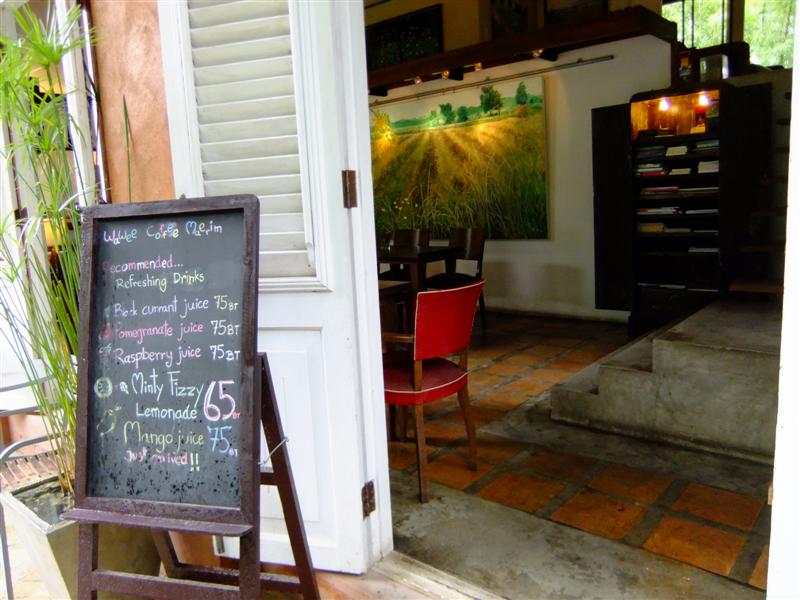 WaWee Coffee Maerim
Recommended...
Refreshing Drinks
Black currant juice 75BT
Pomegranate juice 75BT
Raspberry juice 75BT
Minty Fizzy
Lemonade 65BT
Mango juice 75BT
Just arrived!!